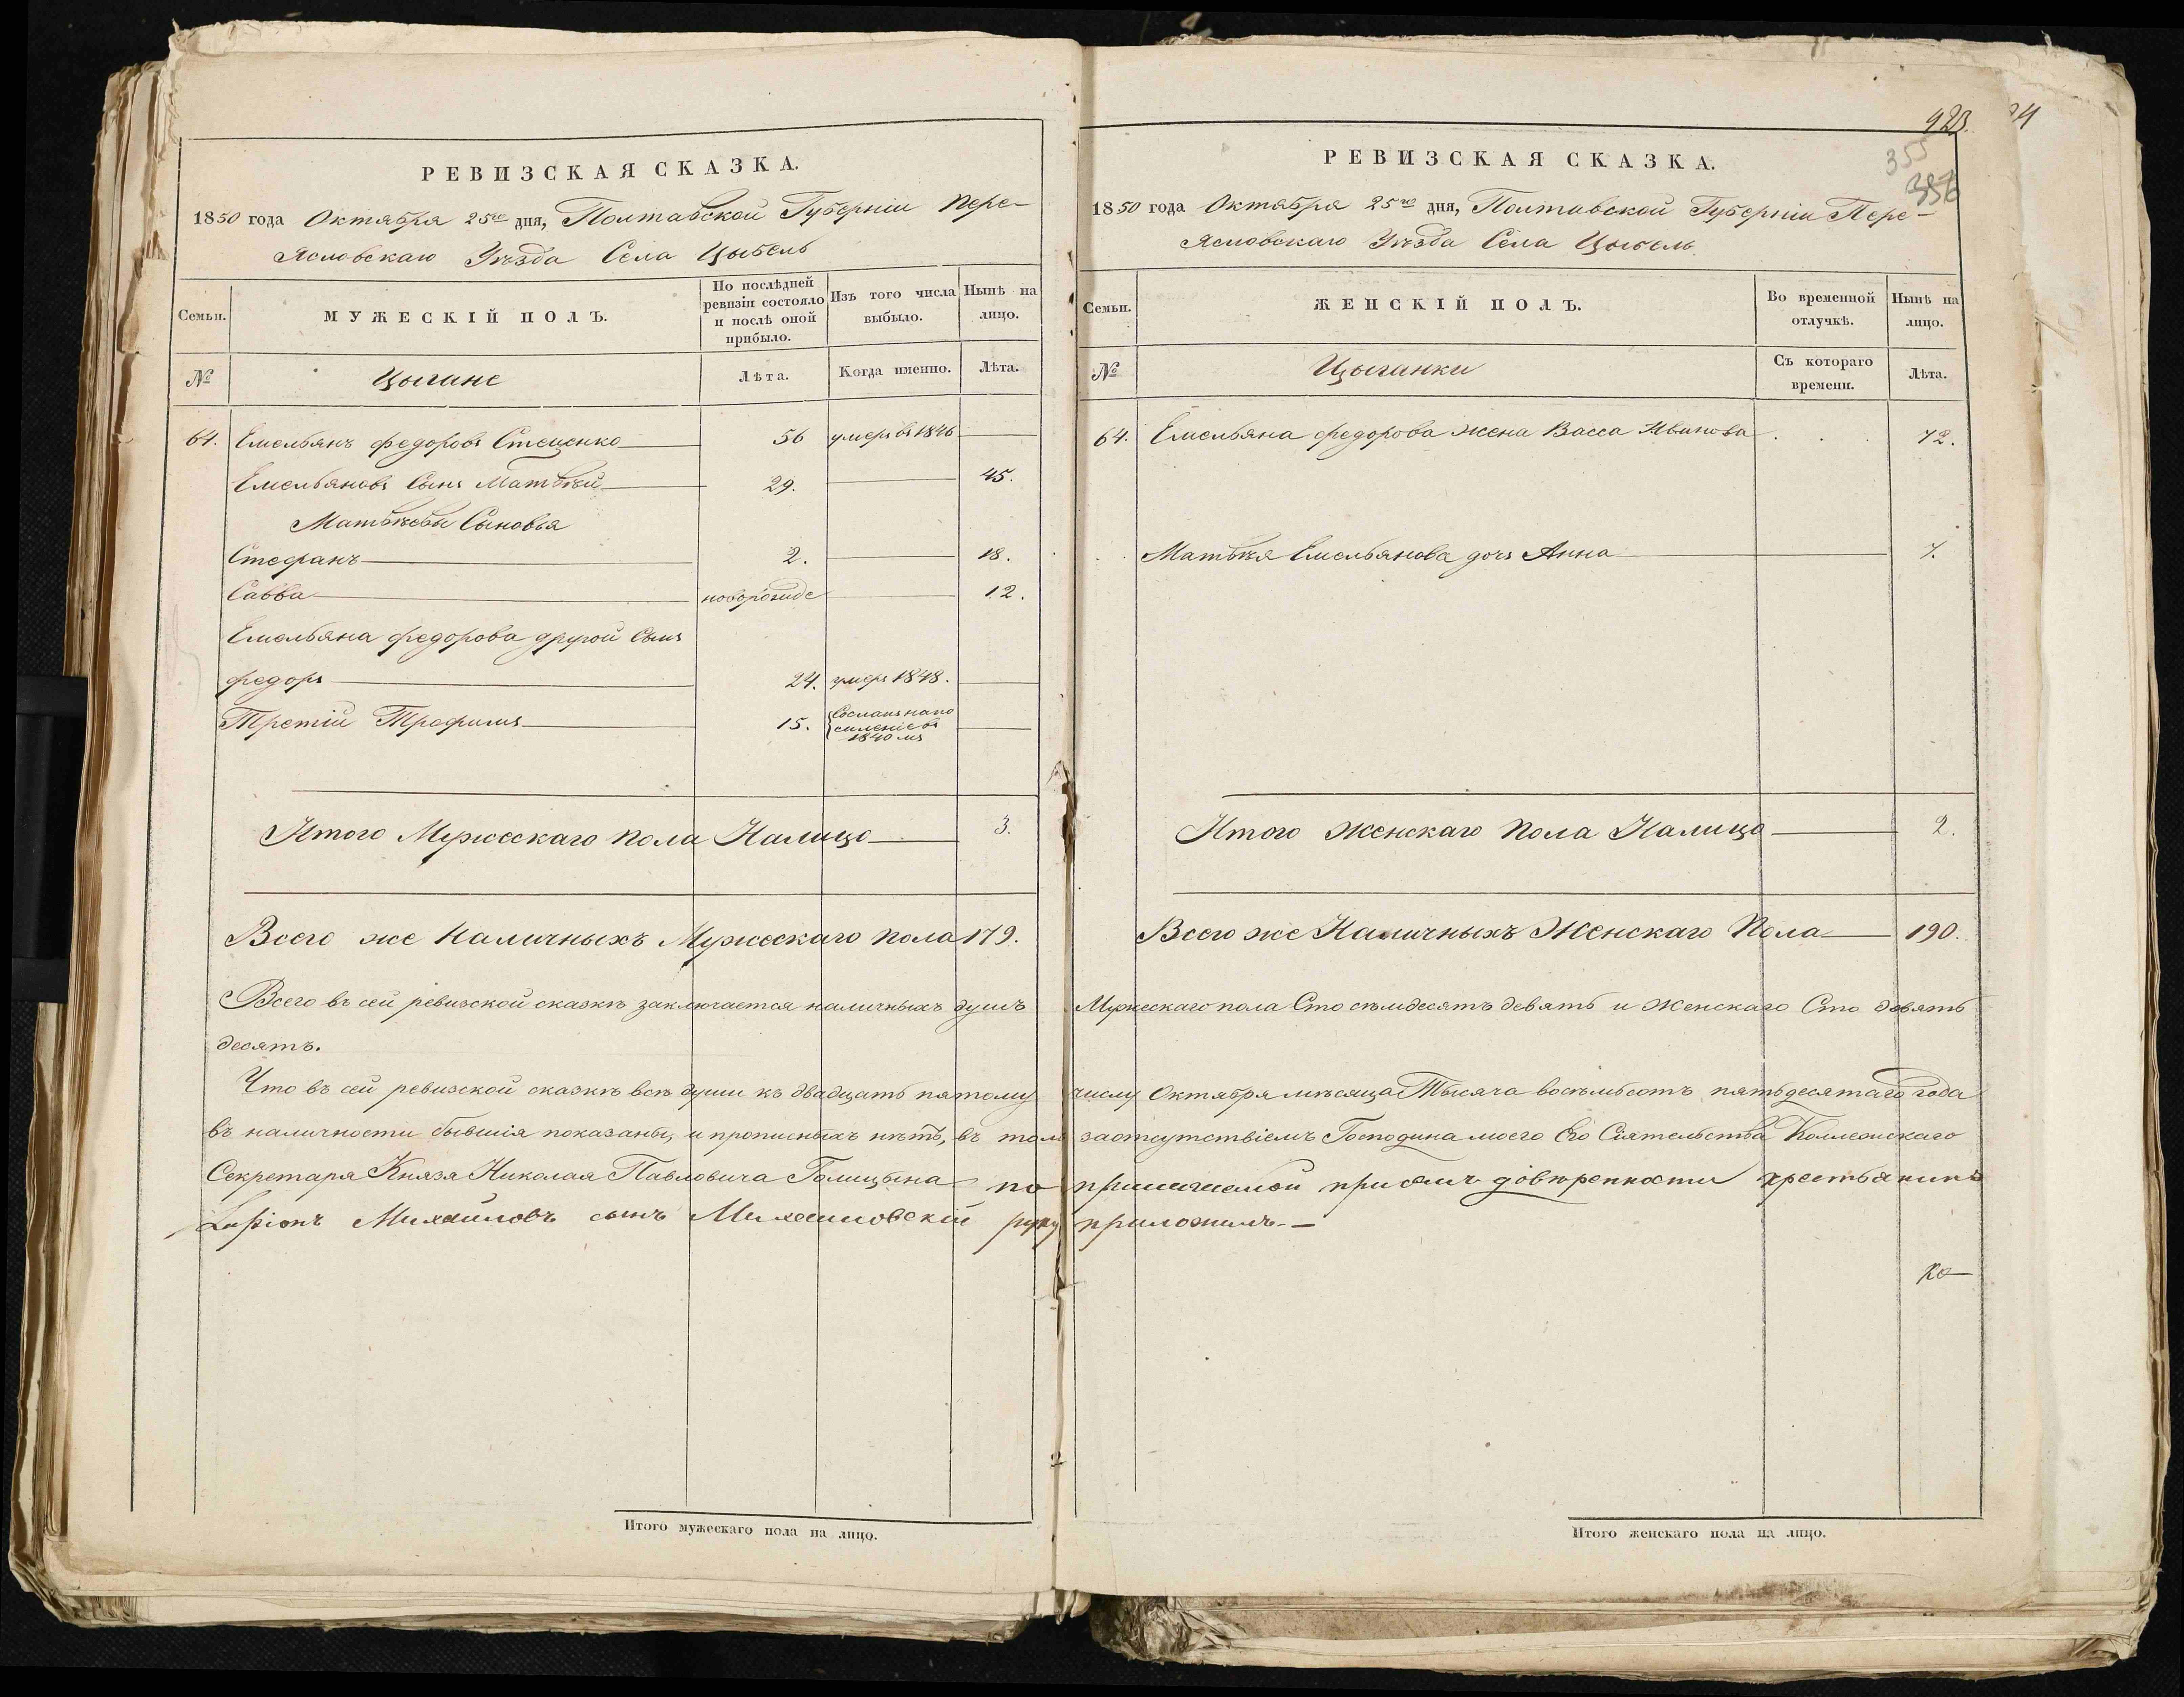 РЕВИЗСКАЯ СКАЗКА.
1850 года Октября 25го дня, Полтавской Губерніи Пере-
яславскаго Уѣзда Села Цыбель
Семьи.
МУЖЕСКІЙ ПОЛЪ.
По послѣдней ревизіи состояло и послѣ оной прибыло.
Изъ того числа выбыло.
Нынѣ на лицо.
№
Цыгане
Лѣта.
Когда именно.
Лѣта.
64. Емельянъ Федоровъ Стеценко 56 умеръ въ 1846
Емельяновъ Сынъ Матвѣй 29. 45.
Матвѣевы Сыновья
Стефанъ 2. 18.
Савва новорожде 12.
Емельяна Федорова другой Сынъ
Федоръ 24. умеръ 1848.
Третій Трофимъ 15. Сосланъ на по
селеніе въ
1840 мъ
Итого Мужескаго пола Налицо 3.
Всего же Наличныхъ Мужескаго пола 179.
923.
24
355
356
РЕВИЗСКАЯ СКАЗКА.
1850 года Октября 25го дня, Полтавской Губерніи Пере-
яславскаго Уѣзда Села Цыбель.
Семьи.
ЖЕНСКІЙ ПОЛЪ.
Во временной отлучкѣ.
Нынѣ на лицо.
№
Цыганки
Съ котораго времени.
Лѣта.
64. Емельяна Федорова жена Васса Иванова . . . 72.
Матвѣя Емельянова дочь Анна 7.
Итого Женскаго пола Налицо 2.
Всего же Наличныхъ Женскаго Пола 190.
Всего въ сей ревизской сказкѣ заключается наличныхъ душъ Мужескаго пола Сто семьдесятъ девять и Женскаго Сто девять
десятъ.
Что въ сей ревизской сказкѣ всѣ души къ двадцать пятому числу Октября мѣсяца Тысяча восемьсотъ пятьдесятаго года
въ наличности бывшія показаны, и прописныхъ нѣтъ, въ томъ заотсутствіемъ Господина моего Его Сіятельства Коллежскаго
Секретаря Князя Николая Павловича Голицына по прилагаемой присемъ довѣренности крестьянинъ
Ларіонъ Михайловъ сынъ Михайловскій руку приложилъ.
Итого мужескаго пола на лицо.
Итого женскаго пола на лицо.